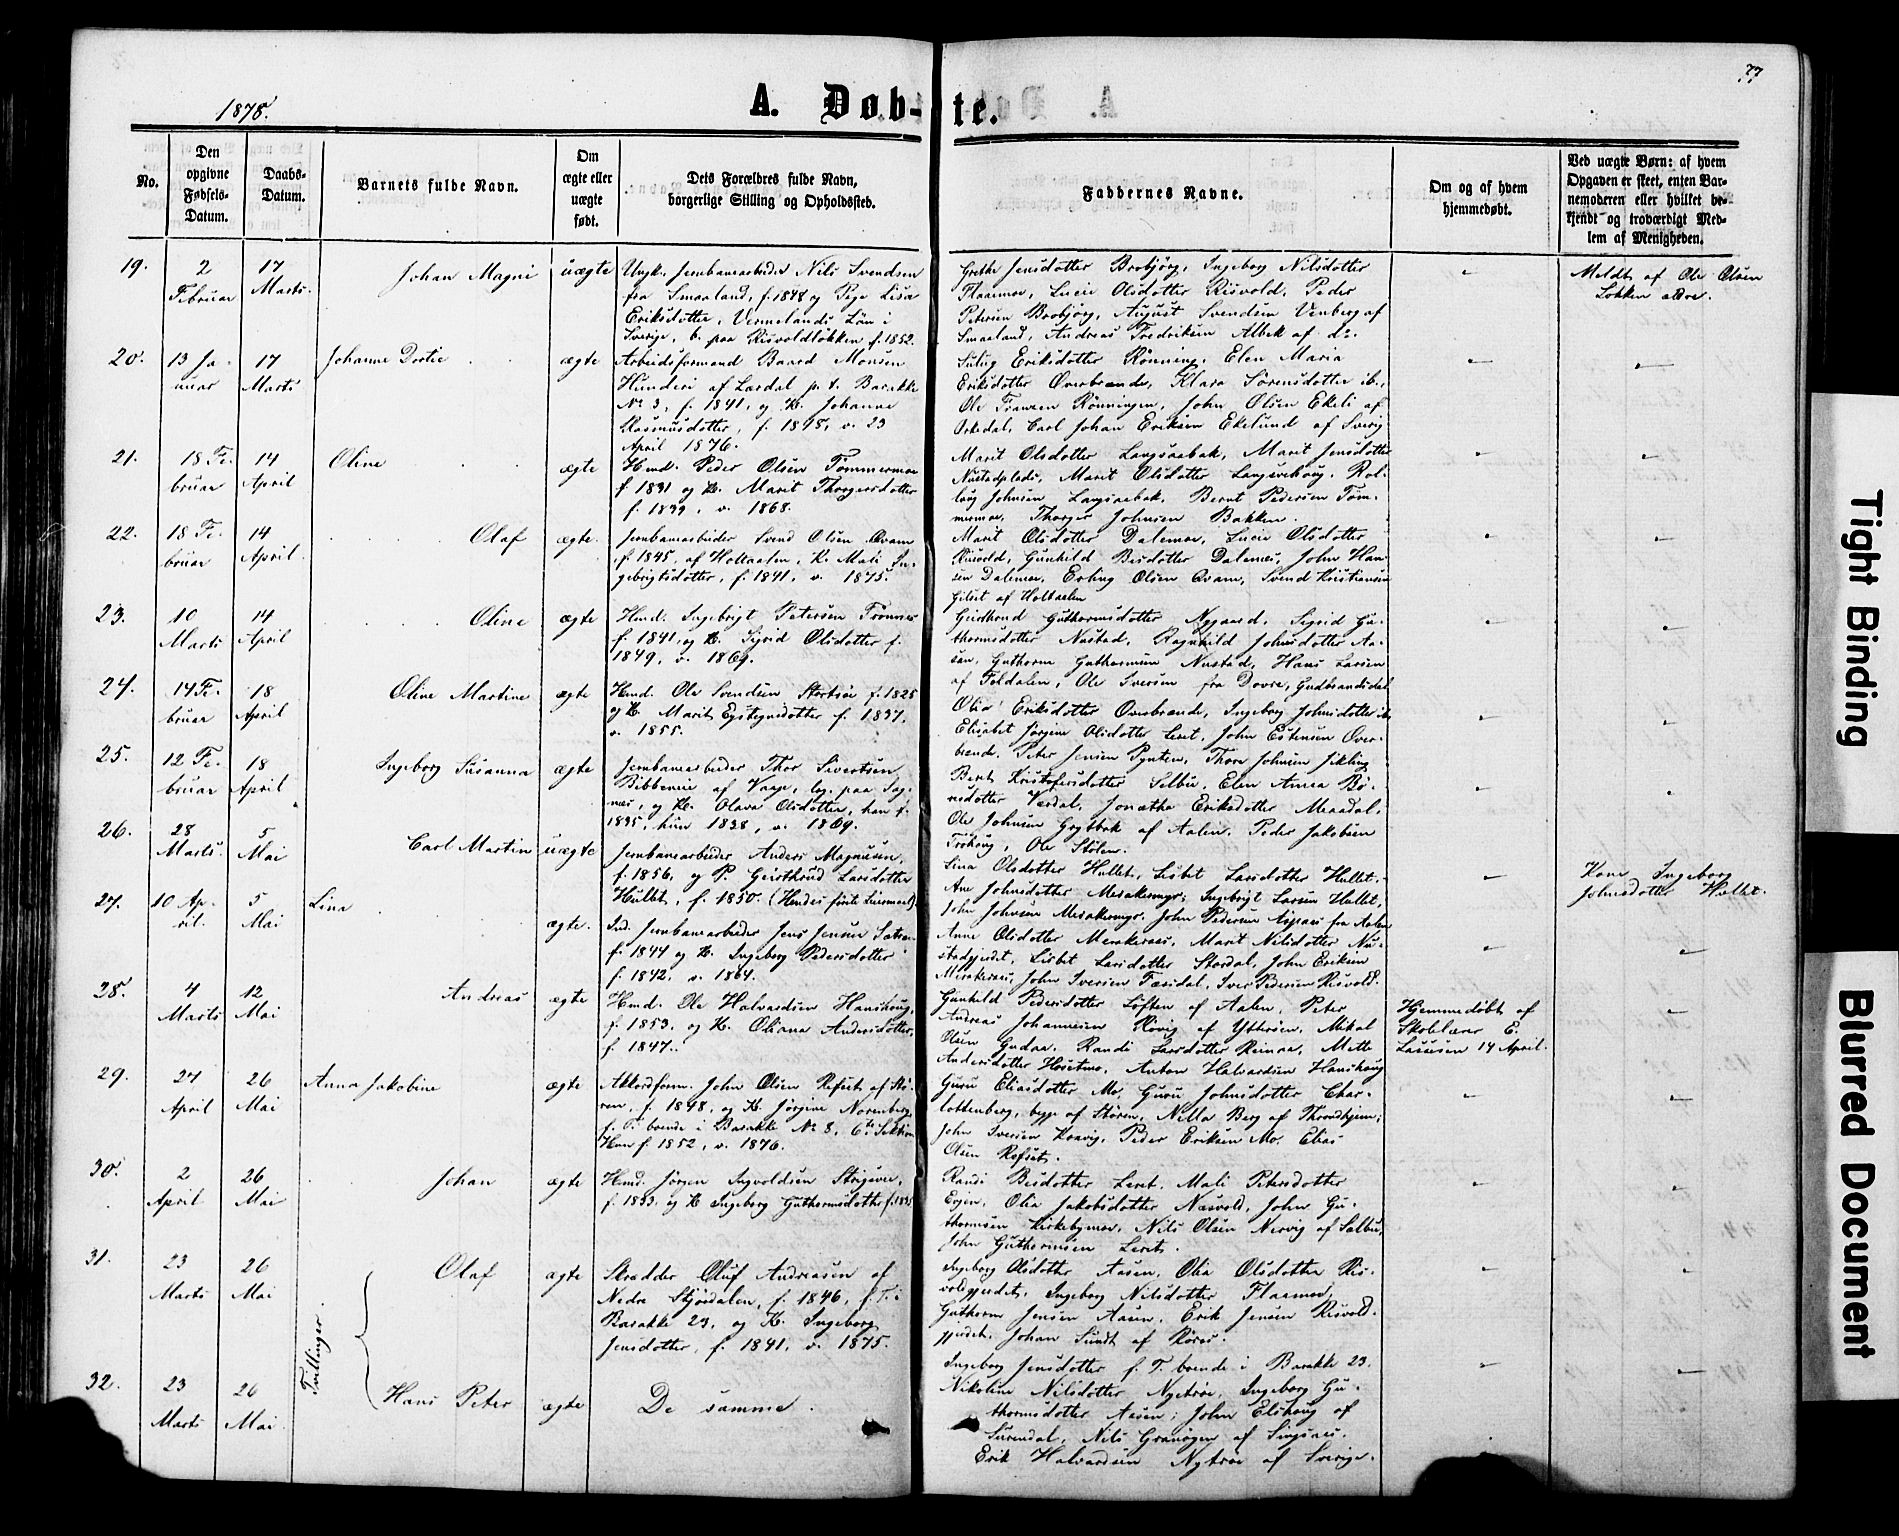 77
1878.
A. Døb-te.
No.
Den
opgivne
Fødsels-
Datum.
Daabs-
Datum.
Barnets fulde Navn.
Om
ægte eller
uægte
født.
Dets Forældres fulde Navn,
borgerlige Stilling og Opholdssted.
Faddernes Navne.
Om og af hvem
hjemmedøbt.
Ved uægte Børn: af hvem
Opgaven er skeet, enten Bar-
nemoderen eller hvilket be-
kjendt og troværdigt Med-
lem af Menigheden.
19.
2
Februar
17
Marts.
Johan Magni
uægte
Ungk. Jernbanearbeider Nils Svendsen
fra Smaaland, f. 1848 og Pige Lisa
Eriksdotter, Vermelands Län i
Sverige, b. paa Risvoldløkken f. 1852.
Grethe Jensdotter Brobjørg, Ingeborg Nilsdotter
Flaamoe, Lucie Olsdotter Risvold, Peder
Petersen Brobjørg, August Svendsen Venberg af
Smaaland, Andreas Fredriksen Albek af do.
Meldt af Ole Olsen
Løkken ældre.
20.
13 Ja-
nuar
17
Marts
Johanne Dortie
ægte
Arbeidsformand Baard Monsen
Hunderi af Lærdal p. t. Barakke
No 3, f. 1841, og K. Johanne
Rasmusdotter, f. 1848, v. 23
April 1876.
Eriksdotter Rønning, Elen Maria
Eriksdotter Overbrende, Klara Sørensdotter ib.,
Ole Franzen Rønningen, John Olsen Ekeli af
Orkedal, Carl Johan Eriksen Ekelund af Sverig
21.
18 Fe-
bruar
14
April
Oline
ægte
Hmd. Peder Olsen Tømmermoe
f. 1831 og K. Marit Thorgersdotter
f. 1839, v. 1868.
Marit Olsdotter Langsaabak, Marit Jensdotter
Nustadplads, Marit Olsdotter Langsvehoug, Rol-
laug Johnsen Langsaabak, Bernt Pedersen Tøm-
mermoe, Thorger Johnsen Bakken.
22.
18 Fe-
bruar
14
April.
Olaf
ægte.
Jernbanearbeider Svend Olsen Qvam
f. 1845, af Holtaalen, K. Mali In-
gebrigtsdotter, f. 1841, v. 1875.
Marit Olsdotter Dalemoe, Lucie Olsdotter
Risvold, Gunhild Besdotter Dalemoe, John Han-
sen Dalemoe, Erling Olsen Qvam, Svend Kristiansen
Gilset af Holtaalen
23.
10
Marts
14
April
Oline
ægte
Hmd. Ingebrigt Petersen Tronnes
f. 1841, og K. Sigrid Olsdotter f.
1849, v. 1869.
Guthormsdotter Nygaard, Sigrid Gu-
thormsdotter Nustad, Ragnhild Johnsdotter Aa-
sen, Guthorm Guthormsen Nustad, Hans Larsen
af Foldalen, Ole Iversen fra Dovre, Gudbrandsdal
24.
14 Fe-
bruar
18
April
Oline Martine
ægte
Hmd. Ole Svendsen Stortrøe f. 1825
og K. Marit Eysteynsdotter f. 1837.
v. 1855.
Olia Eriksdotter Overbrende, Ingeborg Johnsdotter ib.
Elisabet Jørgine Olsdotter Leret, John Estensen Over-
brende, Peter Jensen Pynten, Thore Johnsen Sikling
25.
12 Fe-
bruar
18
April
Ingeborg Susanna
ægte
Jernbanearbeider Thor Sivertsen
Ribbenes af Vaage, lig. paa Seg-
næs, og K. Olava Olsdotter, han f.
1835, hun 1838, v. 1869.
Beret Kristofersdotter Selbu, Elen Anna Bø-
nsdotter Værdal, Jonetha Eriksdotter Meradal,
Ole Johnsen Grytbak af Aalen, Peder Jakobsen
Trøhoug, Ole Stølen.
26.
28
Marts.
5
Mai
Carl Martin
uægte
Jernbanearbeider Anders Magnusen,
f. 1856, og P. Gjertrud Larsdotter
Hullet, f. 1850. (Hendes første Leiermaal).
Lina Olsdotter Hullet, Lisbet Larsdotter Hullet,
Ane Johnsdotter Merakermyr, Ingebrigt Larsen Hullet,
John Johnsen Merakermyr, John Pedersen Aspaas fra Aalen
Kone Ingeborg
Johnsdotter Hullet.
27.
10 Ap-
ril.
5
Mai
Lina
ægte.
Ind. Jernbanearbeider Jens Jensen
f. 1844 og K. Ingeborg Pedersdotter
f. 1842, v. 1864.
Anne Olsdotter Merakeraas, Marit Nilsdotter Nu-
stadgjerdet, Lisbet Larsdotter Stordal, John Eriksen
Merakeraas, John Iversen Færsdal, Iver Pedersen Risvold.
28.
4
Marts
12
Mai
Andreas
ægte
Hmd. Ole Halvardsen Hanshoug,
f. 1853, og K. Oliana Andersdotter,
f. 1847.
Gunhild Pedersdotter Løften af Aalen, Peter
Andreas Johannesen Røvig af Ytterøen, Mikal
Olsen Gudaa, Randi Larsdotter Reinaa, Mette
Andersdotter Hosetmo, Anton Halvardsen Hanshoug
Hjemmedøbt af
Skolelærer E.
Lassesen 14 April.
29.
24
April
26
Mai
Anna Jakobine
ægte
Akkordform. John Olsen Refset af Stø-
ren, f. 1848, og K. Jørgine Norenberg,
f. T. boende i Barakke No 8, 6te Sektion
Hun f. 1852, v. 1876.
Guru Eliasdotter Mo, Guru Johnsdotter Char-
lottenberg, begge af Støren, Nilla Berg af Throndhjem,
John Iversen Kravig, Peder Eriksen Mo, Elias
Olsen Refset.
30.
2
April
26
Mai
Johan
ægte
Hmd. Jørgen Ingvoldsen
f. 1833. og K Ingeborg Guthormsdotter f. 1835
Randi Besdotter Leret, Mali Petersdotter
Evjen, Olia Jakobsdotter Næsvold, John Gu-
thormsen Kirkebymoe, Nils Olsen Nervig af Selbu,
John Guthormsen Leret.
31.
23
Marts
26
Mai
Tvillinger
Olaf
ægte
Skrædder Oluf Andreasen af
Nedre Stjørdalen, f. 1846, f. T. i
Barakke 23, og K. Ingeborg
Jensdotter, f. 1841, v. 1875.
Ingeborg Olsdotter Aasen, Olia Olsdotter Ris-
voldgjerdet, Ingeborg Nilsdotter Flaamoe,
Guthorm Jensen Aasen, Erik Jensen Risvold-
gjerdet, Johan Sundt af Røros.
32.
23
Marts
26
Mai.
Hans Peter
ægte
De samme.
Ingeborg Jensdotter f. T. boende i Barakke 23.
Nikoline Nilsdotter Nytrøe, Ingeborg Gu-
thormsdotter Aasen, John Elshoug af
Surendal, Nils Granøgen af Singsaas.
Erik Halvardsen Nytrøe af Sverige.
Tight Binding
Blurred Document